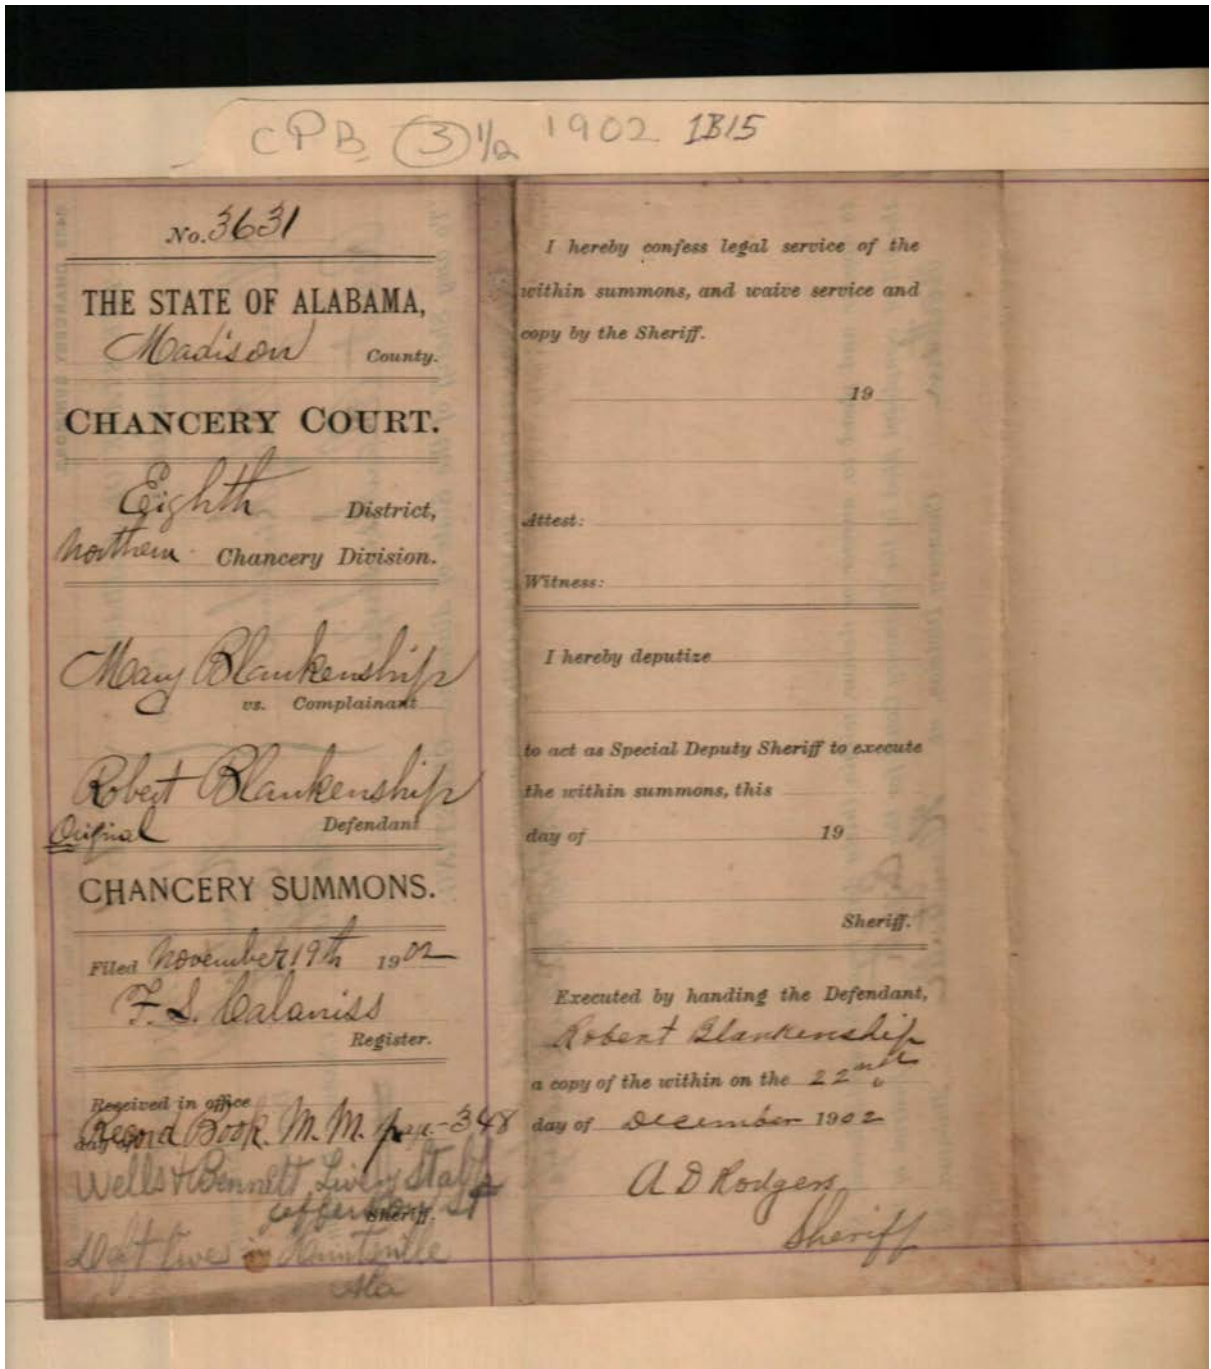 CPB (3) 1/2 1902 1B15
No. 3631
THE STATE OF ALABAMA,
Madison County.
CHANCERY COURT.
Eighth District,
Northern Chancery Division.
Mary Blankenship
vs. Complainant
Robert Blankenship
Original Defendant
CHANCERY SUMMONS.
Filed November 19th 1902
F. S.
Register.
Received in office
Record Book. M. M. 348
day of
Wells & Bennett Livery Stable
Jefferson St
Sheriff.
Deft lives in Huntsville
Ala
I hereby confess legal service of the
within summons, and waive service and
copy by the Sheriff.
19
Attest:
Witness:
I hereby deputize
to act as Special Deputy Sheriff to execute
the within summons, this
day of 19
Sheriff.
Executed by handing the Defendant,
Robert Blankenship
a copy of the within on the 22nd
day of December 1902
A D Rodgers
Sheriff